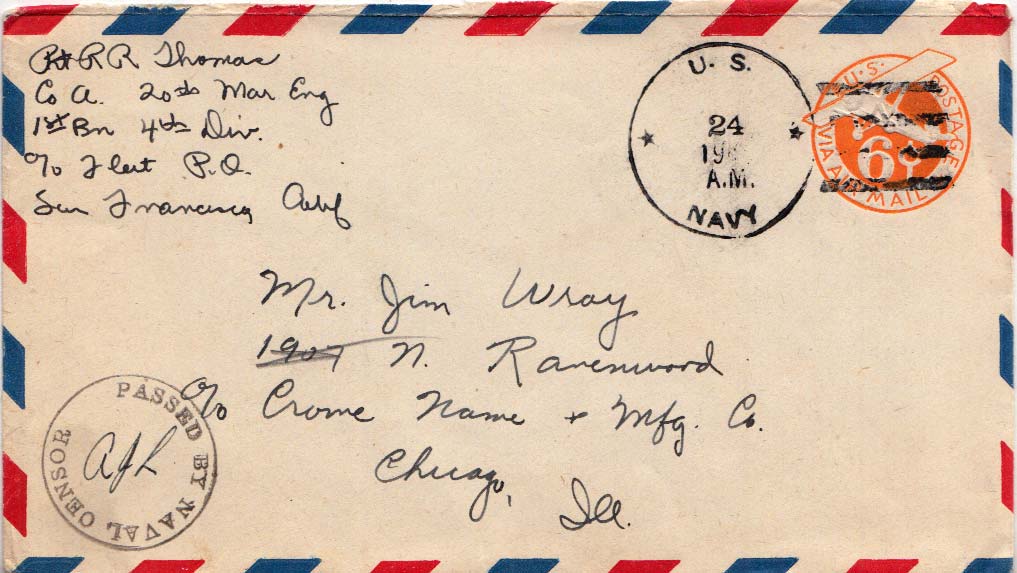 Pvt R R Thomas
Co A. 20th Mar Eng
1st Bn 4th Div.
c/o Fleet P.O.
San Francisco, Calif
U. S.
24
A.M.
NAVY
U.S. POSTAGE
6¢
VIA AIR MAIL
Mr. Jim Wray
1907 N. Ravenwood
c/o Crowe Name & Mfg. Co.
Chicago,
Ill.
PASSED BY NAVAL CENSOR